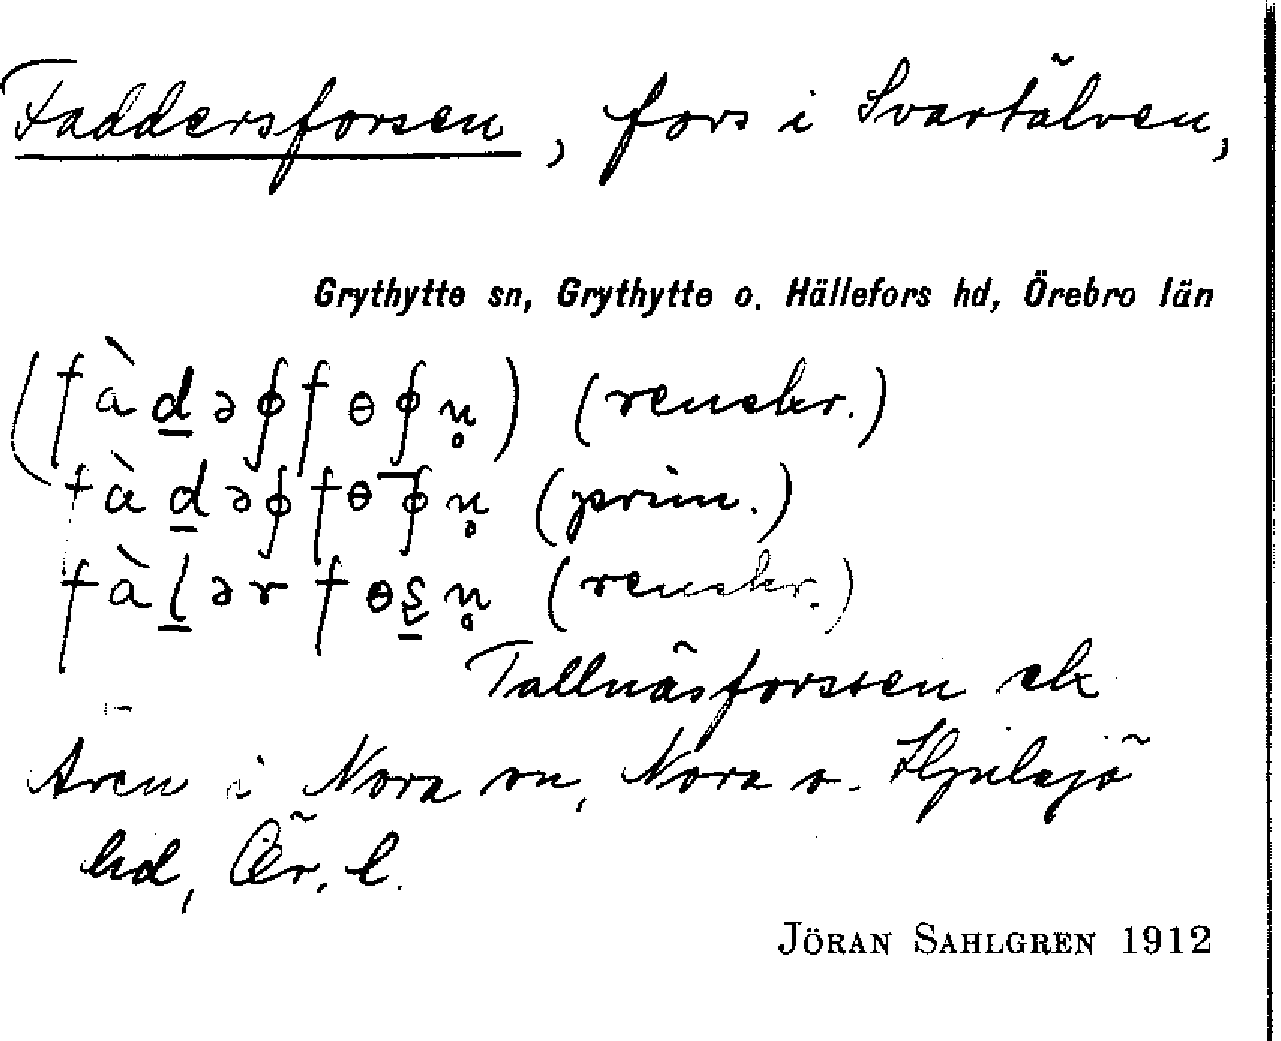 Faddersforsen, fors i Svartälven,
Grythytte sn, Grythytte o. Hällefors hd, Örebro län
(fàd̲əꞘfɵꞘn̥) (renskr.)
fàd̲əꞘfɵꞘn̥ (prim.)
fàl̲ər fɵs̲n̥ (renskr.)
Tallnäsforssen ek
Åren i Nora sn, Nora o. Hjulsjö
hd, Ör. l.
JÖRAN SAHLGREN 1912